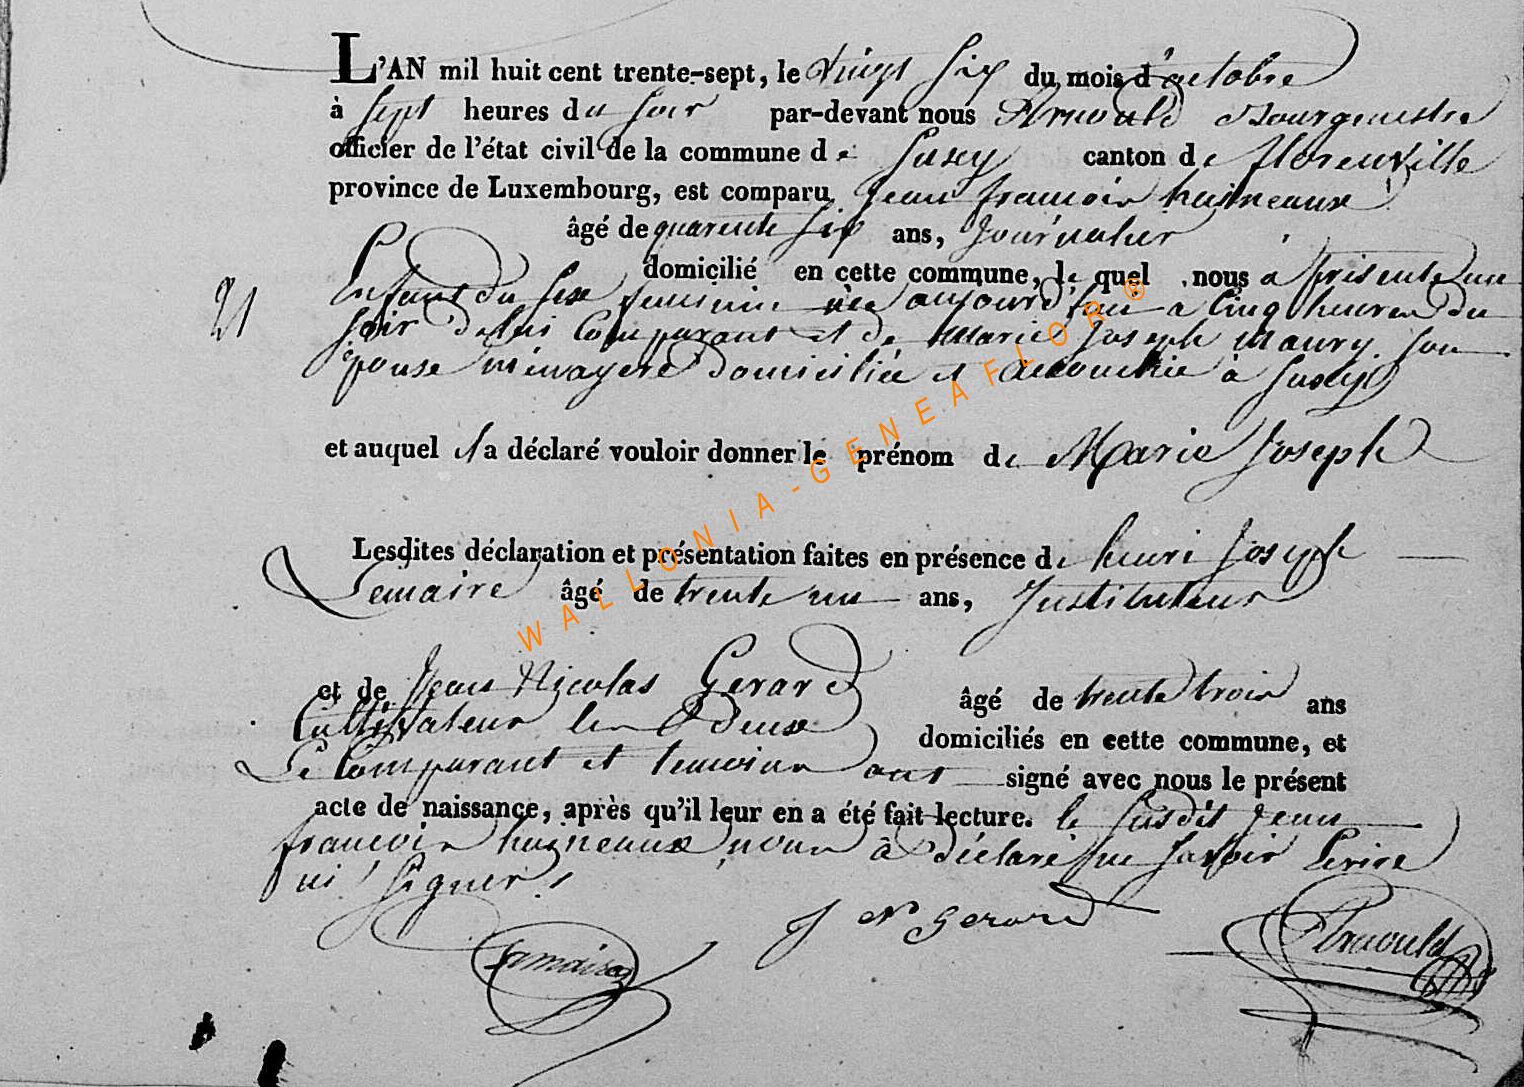 L'AN mil huit cent trente-sept, le vingt six du mois d'octobre
à sept heures du soir par-devant nous Arnould Bourgmestre
officier de l'état civil de la commune de Suxy canton de florenville
province de Luxembourg, est comparu Jean françois huigneaux
âgé de quarente six ans, Journalier
domicilié en cette commune, le quel nous a présenté un
21
Enfant du sexe feminin née aujourd'hui a Cinq heures du
soir de lui Comparant et de Marie Joseph Maury son
épouse ménagere domiciliée et accouchée à Suxy
et auquel il a déclaré vouloir donner le prénom de Marie Joseph
Lesdites déclaration et présentation faites en présence de henri Joseph
Lemaire âgé de trente un ans, Instituteur
et de Jean Nicolas Gerard âgé de trente trois ans
Cultivateur les Deux domiciliés en cette commune, et
Le Comparant et temoins ont signé avec nous le présent
acte de naissance, après qu'il leur en a été fait lecture. le susdit Jean
francois huigneaux nous à déclaré ne savoir Ecrire
ni signer.
J N Gerard
Arnould
Lamaire
WALLONIA-GENEAFLOR®